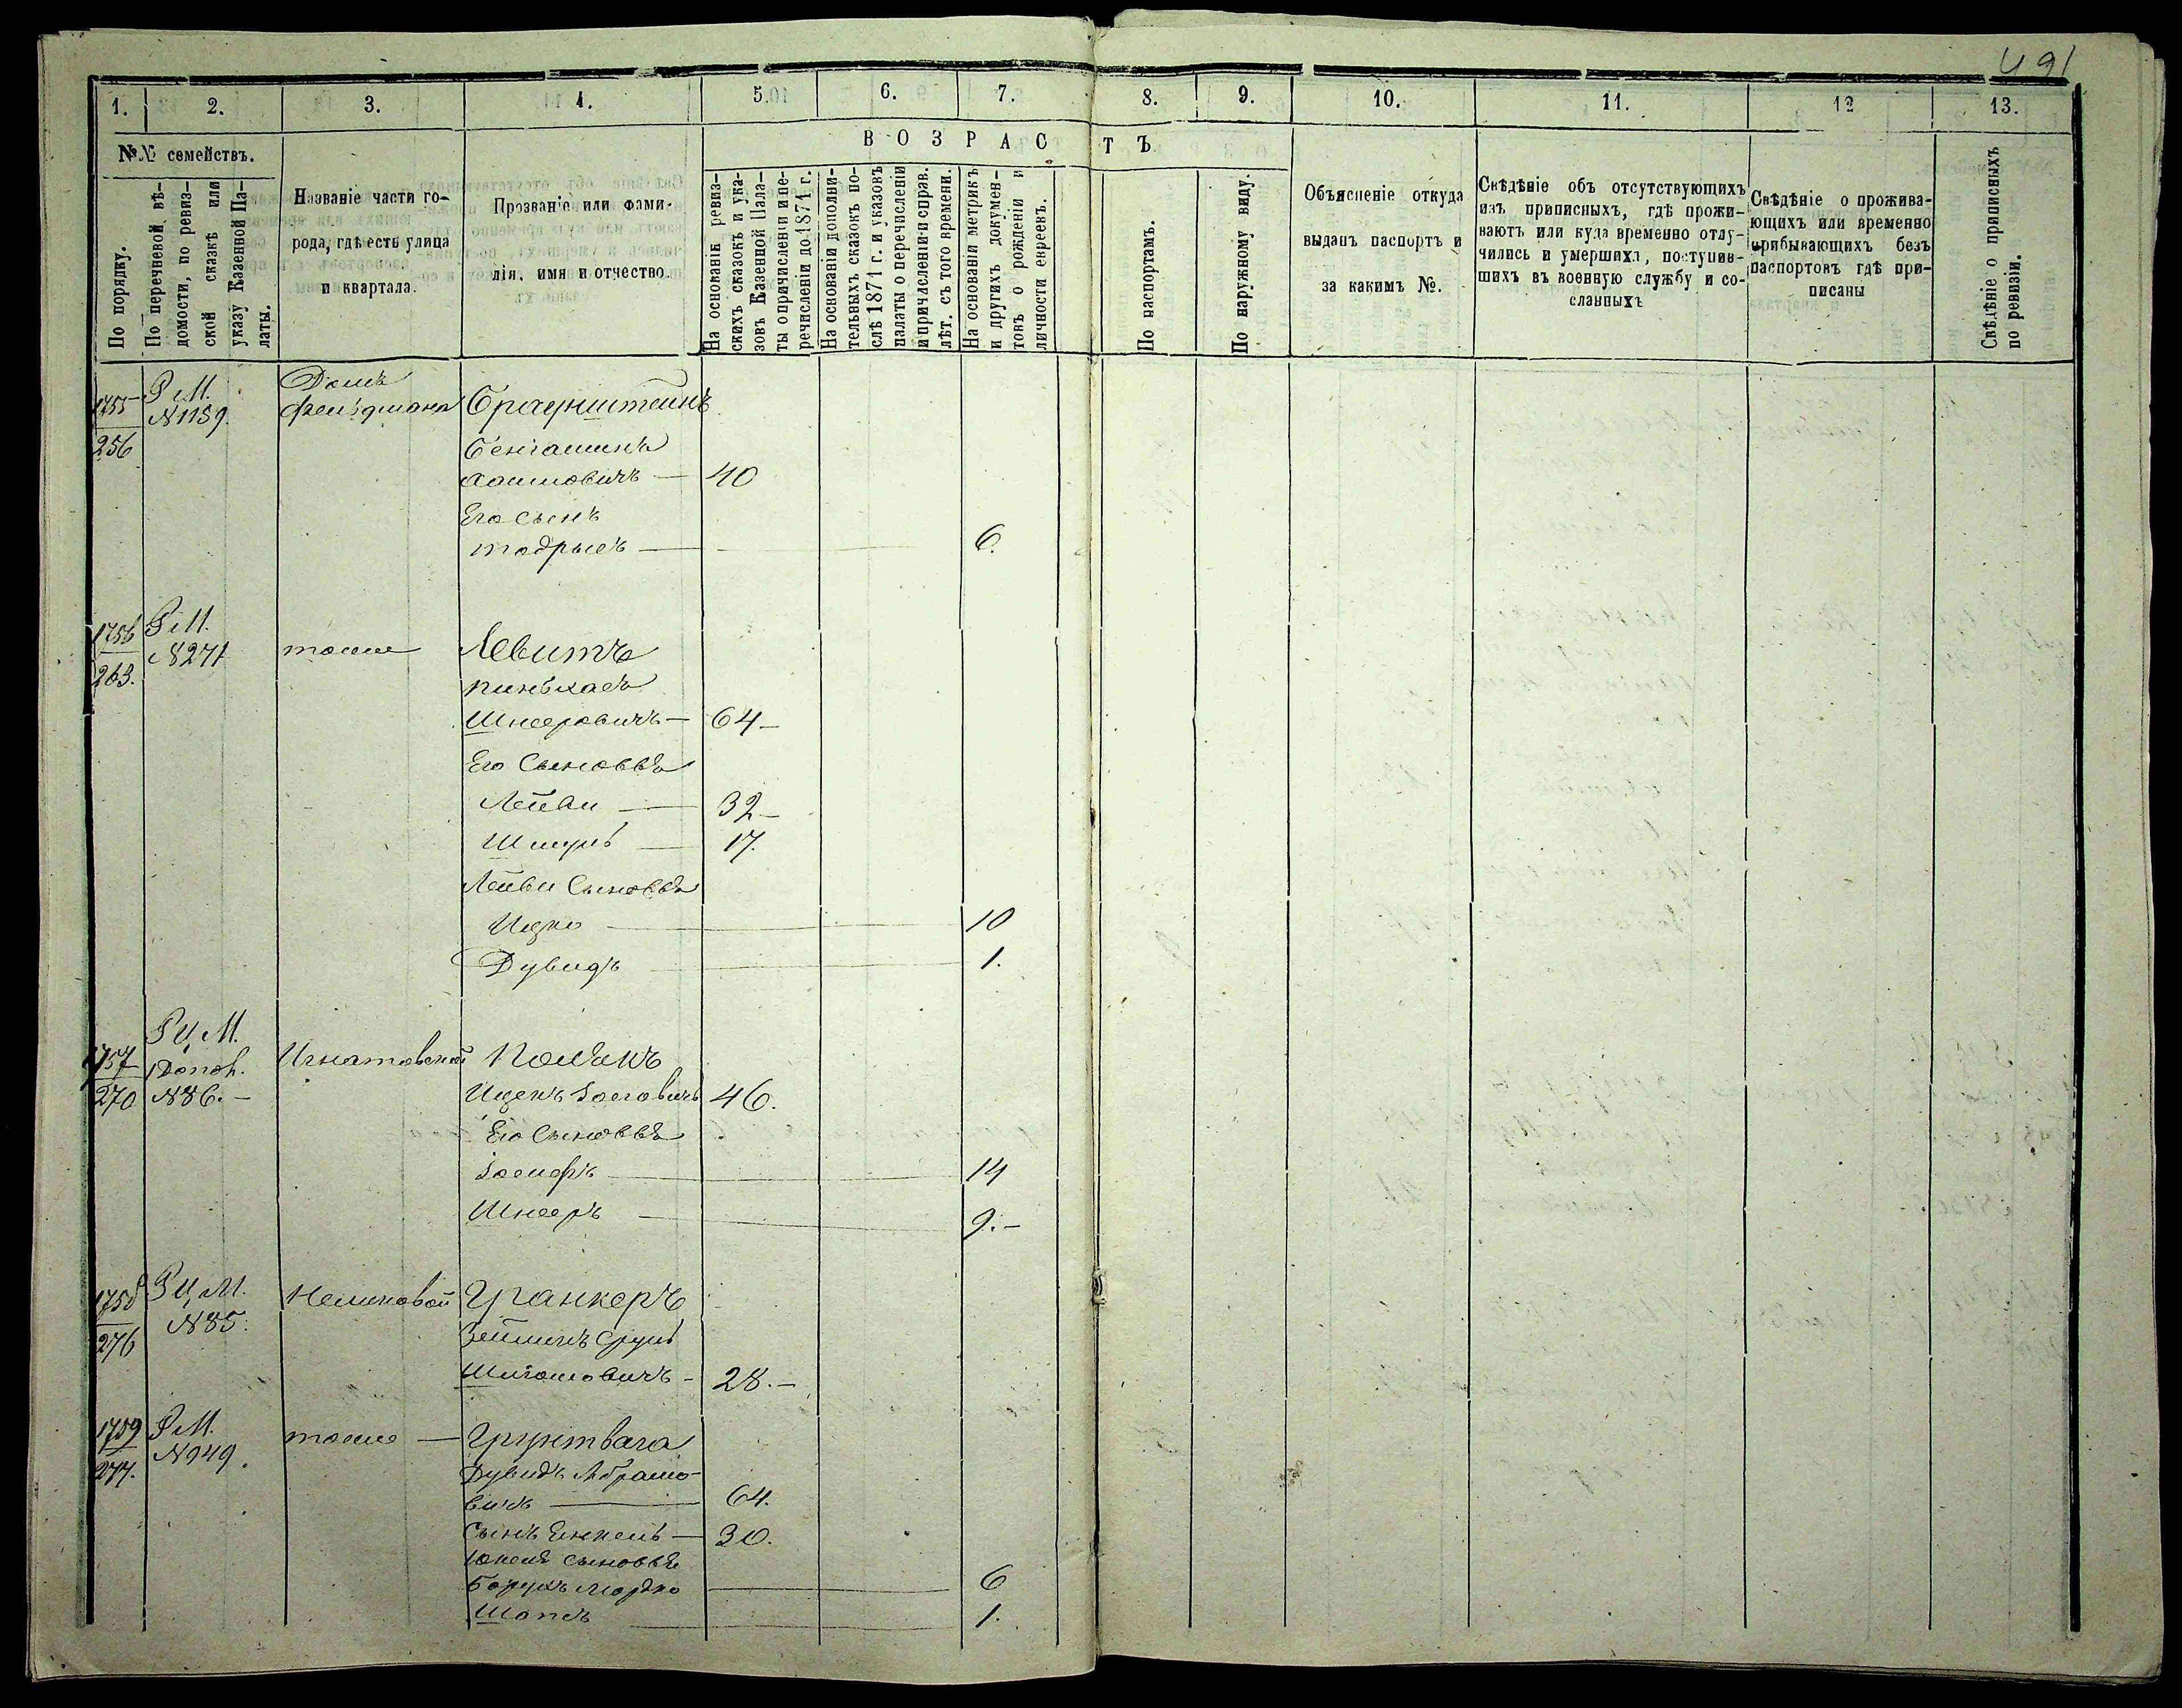 491
1. 2. 3. 4. 5. 6. 7. 8. 9. 10. 11. 12 13.
В О З Р А С Т Ъ
№№ семействъ.
По порядку.
По перечневой вѣ-
домости, по ревиз-
ской сказкѣ или
указу Казенной Па-
латы.
Названіе части го-
рода, гдѣ есть улица
и квартала.
Прозваніе или фами-
лія, имя и отчество.
На основаніи ревиз-
скихъ сказокъ и ука-
зовъ Казенной Пала-
ты о причисленіи и пе-
речисленіи до 1871 г.
На основаніи дополни-
тельныхъ сказокъ по-
слѣ 1871 г. и указовъ
палаты о перечисленіи
и причисленіи и справ.
лѣт. съ того времени.
На основаніи метрикъ
и другихъ докумен-
товъ о рожденіи и
личности евреевъ.
По паспортамъ.
По наружному виду.
Объясненіе откуда
выданъ паспортъ и
за какимъ №.
Свѣдѣніе объ отсутствующихъ
изъ приписныхъ, гдѣ прожи-
ваютъ или куда временно отлу-
чились и умершихъ, поступив-
шихъ въ военную службу и со-
сланныхъ
Свѣдѣніе о прожива-
ющихъ или временно
прибывающихъ безъ
паспортовъ гдѣ при-
писаны
Свѣдѣніе о приписныхъ
по ревизіи.
1755 Р М. Домъ
256 №1159. Фельдмана Браунштейнъ
Беніаминъ
Хаимовичъ — 40
Его Сынъ
Тодрысъ — 6.
1756 Р М.
263. №271 тоже Левитъ
Пинькасъ
Шнееровичъ — 64 —
Его Сыновья
Лейви — 32 —
Шмуль — 17.
Лейви Сыновья
Ицко 10
Дувидъ 1.
1757 Р Ц М. Игнатовской
270 Допол. №86. —
Ицекъ Іосевичъ 46.
Его Сыновья
Іосифъ 14
Шнееръ 9. —
1758 Р Ц М.
276 №85. Гранкеръ
Срулъ
28. —
1759 Р М.
277. №949. тоже — Грунтвага
Дувидъ Абрамо-
вичъ — 64.
Сынъ Енкель — 30.
Сыновья
Борухъ Мордко 6
Шапсъ 1.